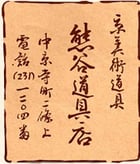 京美術道具
熊谷道具店
中京寺町二條上
電話(231)一二〇四番